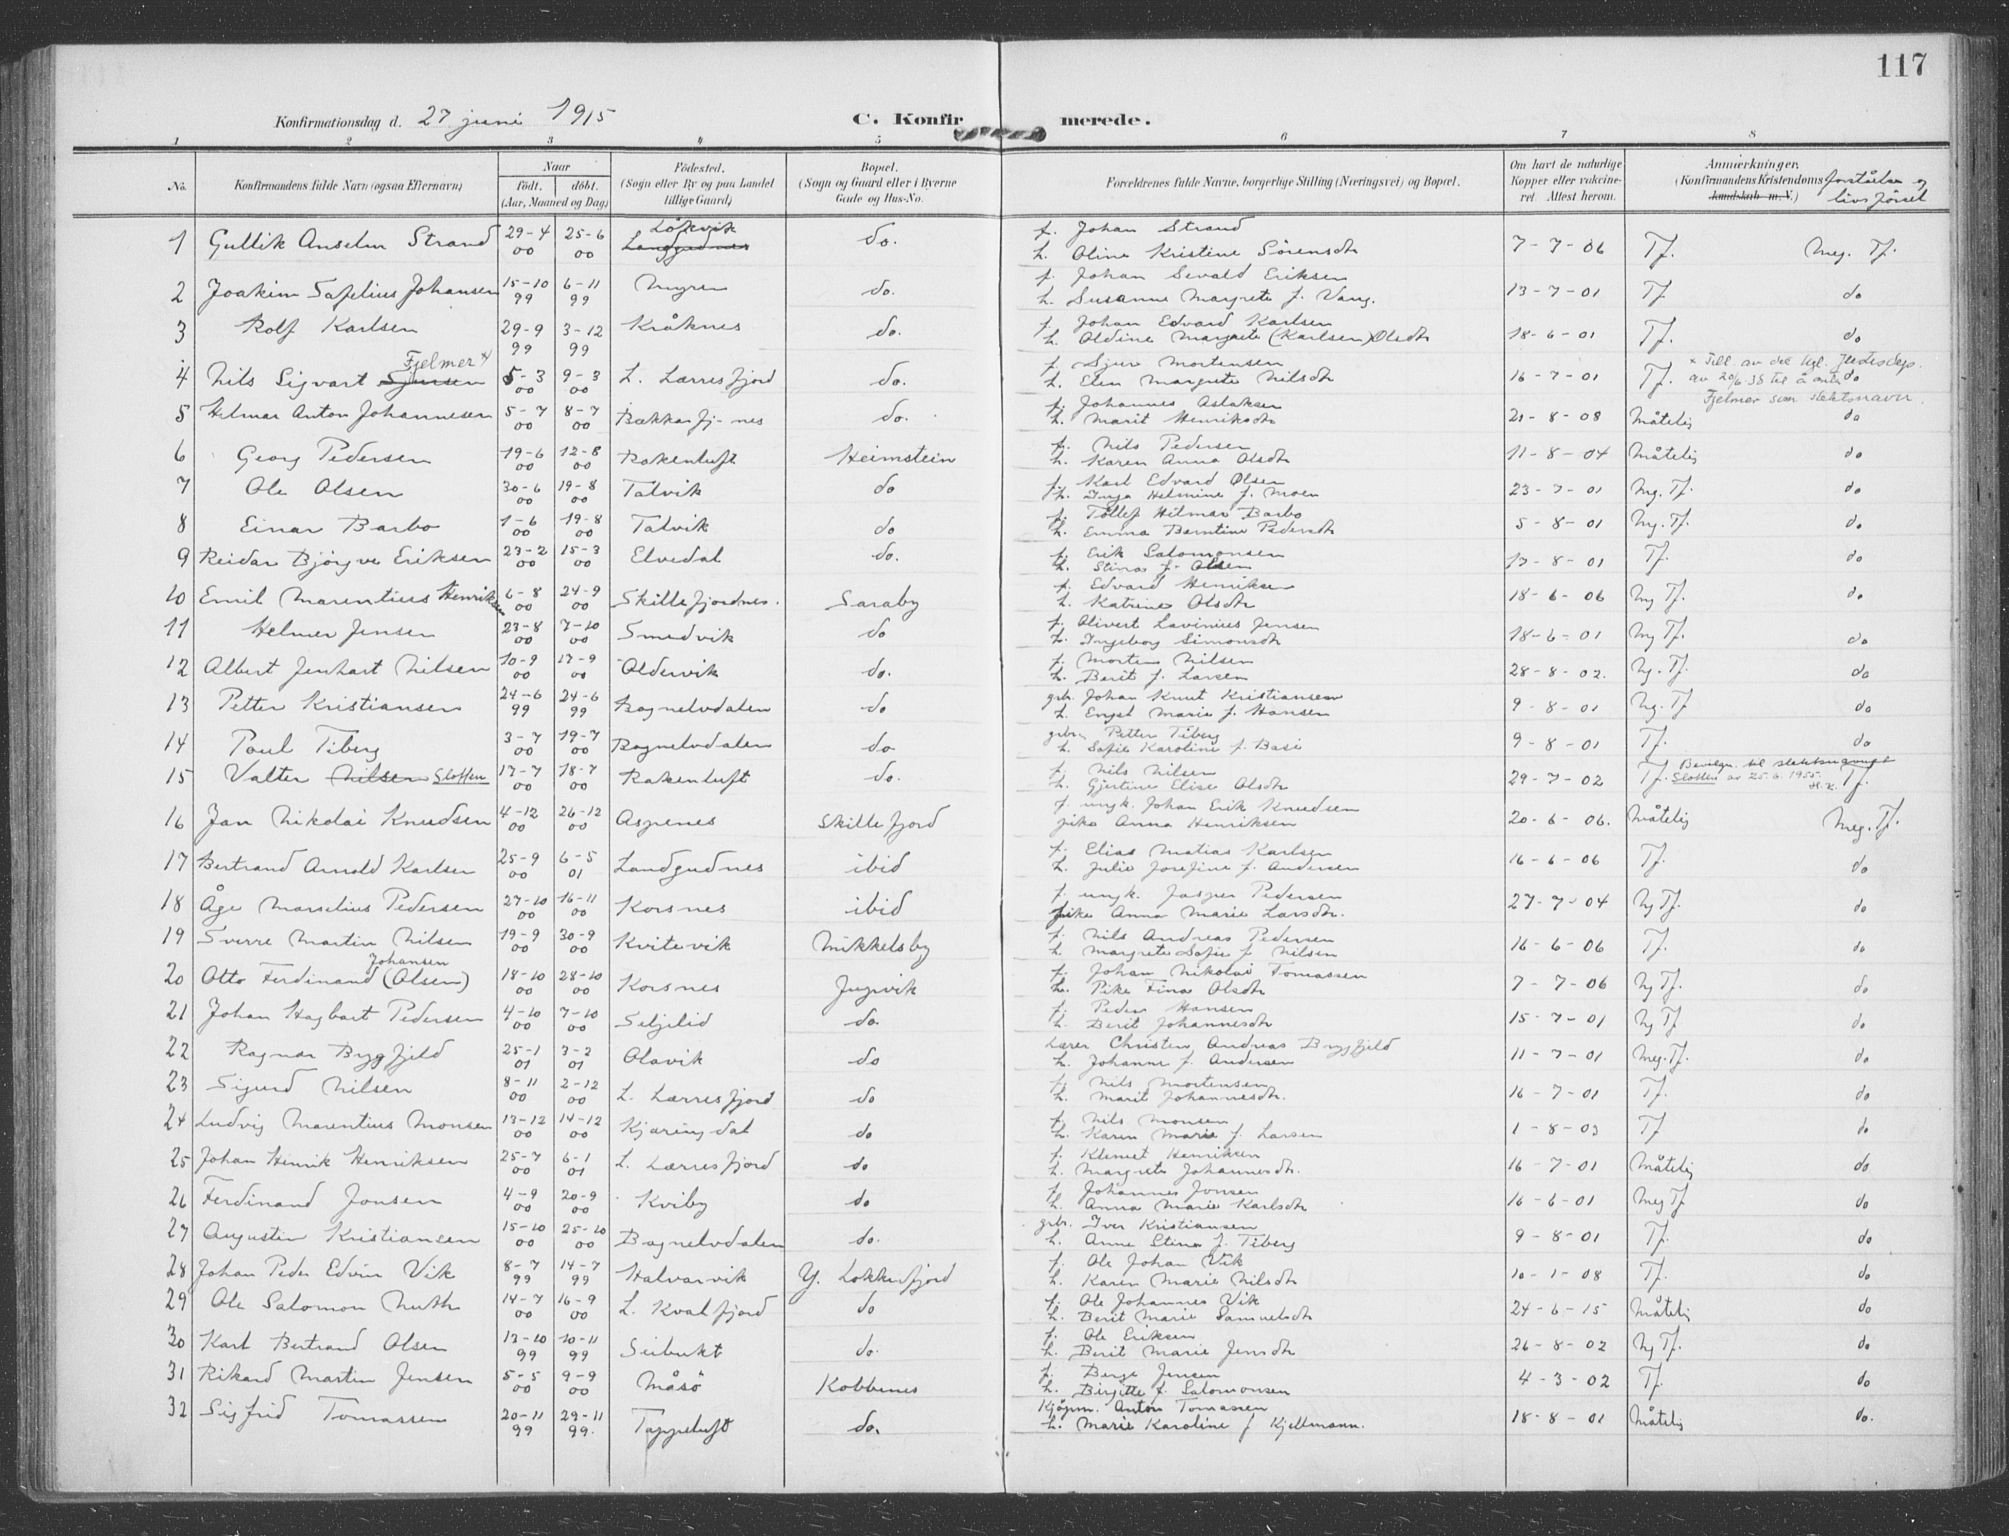 117
Konfirmationsdag d. 27 juni 1915 C. Konfirmerede.
1 2 3 4 5 6 7 8
No. Konfirmandens fulde Navn (ogsaa Efternavn) Naar født. døbt. (Aar, Maaned og Dag) Fødested. (Sogn eller By og paa Landet tillige Gaard) Bopæl. (Sogn og Gaard eller i Byerne Gade og Hus-No. Forældrenes fulde Navne, borgerlige Stilling (Næringsvei) og Bopæl. Om havt de naturlige Kopper eller vakcineret. Attest herom. Anmærkninger. (Konfirmandens Kristendoms kundskab m. V.) forståelse og livsførsel
1 Gullik Anselm Strand 29-4 00 25-6 00 Lökvik Langgudnes do. f. Johan Strand h. Oline Kristine Sörensdtr 7-7-06 Tf. Meg. Tf.
2 Joakim Johansen 15-10 99 6-11 99 do. f. Johan Sevald Eriksen h. Susanne Margrete f. Vang. 13-7-01 Tf do
3 Rolf Karlsen 29-9 99 3-12 99 Kråknes do. f. Johan Edvard Karlsen h. Oldine Margrete (Karlsen) Olsdtr 18-6-01 Tf. do
4 Nils Sigvart Sjursen Fjelmer x 5-3 00 9-3 00 L. Lerresfjord do. f. Sjur Mortensen h. Elen Margrete Nilsdtr 16-7-01 Tf. do x Till. av det kgl. Justisdep. av 20/6 38 til å anta Fjelmer som slektsnavn.
5 Helmar Anton Johannesen 5-7 00 8-7 00 Bekkarfj-nes do. f. Johannes Aslaksen h. Marit Henriksdtr 21-8-08 Måtelig do
6 Georg Pedersen 19-6 00 12-8 00 Rakenluft Heimstein f. Nils Pedersen h. Karen Anna Olsdtr 11-8-04 Måtelig do
7 Ole Olsen 30-6 00 19-8 00 Talvik do f. Karl Edvard Olsen h. Inga Helmine f. Moen 23-7-01 Mg. Tf. do
8 Einar Barbo 1-6 00 19-8 00 Talvik do f. Tollef Hilmar Barbo h. Emma Berntine Pedersdtr 5-8-01 Mg. Tf. do
9 Reidar Bjørgve Eriksen 23-2 00 15-3 00 Elvedal do. f. Erik Salomonsen h. Stina f. Olsen 13-8-01 Tf. do
10 Emil Marentius Henriksen 6-8 00 24-9 00 Skillefjordnes. Saraby f. Edvard Henriksen h. Katrine Olsdtr 18-6-06 Mg Tf. do
11 Helmer Jensen 23-8 00 7-10 00 Smedvik do f. Olivert Lavinius Jensen h. Ingeborg Simonsdtr 18-6-01 Mg Tf. do
12 Albert Jenhart Nilsen 10-9 00 17-9 00 Oldervik do. f. Morten Nilsen h. Berit f. Larsen 28-8-02. Mg. Tf. do
13 Petter Kristiansen 24-6 99 24-6 99 Bognelvdalen do grb. Johan Knut Kristiansen h. Engel Marie f. Hansen 9-8-01 Mg. Tf do
14 Paul Tiberg 3-7 00 19-7 00 Bognelvdalen do grbr. Petter Tiberg h. Sofie Karoline f. Basi 9-8-01 Tf. do
15 Valter Nilsen Slotten 17-7 00 18-7 00 Rakenluft do. f. Nils Nilsen h. Gjertine Elise Olsdtr 29-7-02 Tf. Bevilgn. til slektsnavnet Slotten av 25.6.1955. H.K. Tf.
16 Jan Nikolai Knudsen 4-12 00 26-12 00 Aspenes Skillefjord f. ungk. Johan Erik Knudsen pike Anna Henriksen 20-6-06. Måtelig Meg. Tf.
17 Bertrand Arnold Karlsen 25-9 00 6-5 01 Landgudnes ibid f. Elias Matias Karlsen h. Julie Josefine f. Andersen 16-6-06 Tf. do
18 Åge Marselius Pedersen 27-10 00 16-11 00 Korsnes ibid f. ungk. Jasper Pedersen pike Anna Marie Larsdtr. 27-7-04 Mg Tf. do
19 Sverre Martin Nilsen 19-9 00 30-9 00 Kvitevik Mikkelsby f. Nils Andreas Pedersen h. Margrete Sofie f. Nilsen 16-6-06 Tf. do
20 Otto Ferdinand (Olsen) Johansen 18-10 00 28-10 00 Korsnes f. Johan Nikolai Tomassen Pike Fina Olsdtr 7-7-06 Mg Tf. do
21 Johan Hagbart Pedersen 4-10 00 7-10 00 Seljelid do. f. Peder Hansen h. Berit Johannesdtr 15-7-01 Mg Tf do
22 Ragnar Bygfjeld 25-1 01 3-2 01 Olavik do Lærer Christen Andreas Brygfjeld h. Johanne f. Andersen 11-7-01 Meg. Tf. do
23 Sigurd Nilsen 8-11 00 2-12 00 L. Lerresfjord do f. Nils Mortensen h. Marit Johannesdtr. 16-7-01 Tf. do
24 Ludvig Marentius Monsen 13-12 00 14-12 00 Kjæringdal do f. Nils Monsen h. Karen Marie f. Larsen 1-8-03 Tf do
25 Johan Henrik Henriksen 25-7 00 6-1 01 L. Lerresfjord do f. Klemet Henriksen h. Margrete Johannesdtr. 16-7-01 Måtelig do
26 Ferdinand Jonsen 4-9 00 20-9 00 Kviby do f. Johannes Jonsen h. Anna Marie Karlsdtr 16-6-01 Meg Tf do
27 Augustin Kristiansen 15-10 00 25-10 00 Bognelvdalen do. grb. Iver Kristiansen h. Anne Stina f. Tiberg 9-8-01 Tf. do
28 Johan Peder Edvin Vik 8-7 99 14-7 99 Halvarvik Y. Lokkerfjord f. Ole Johan Vik h. Karen Marie Nilsdtr 10-1-08 Tf. do
29 Ole Salomon Muth 14-7 00 16-9 00 L. Kvalfjord do f. Ole Johannes Vik h. Berit Marie Samuelsdtr 24-6-15 Måtelig do
30 Karl Bertrand Olsen 13-10 99 10-11 99 Seibukt do. f. Ole Eriksen h. Berit Marie Jensdtr 26-8-02 Mg Tf. do
31 Rikard Martin Jensen 5-5 00 9-9 00 Måsö Kobbenes f. Berge Jensen h. Birgitte f. Salomonsen 4-3-02 Tf. do
32 Sigfrid Tomassen 20-11 99 29-11 99. Tappeluft do. Kjøpm. Anton Tomassen h. Marie Karoline f Kjellmann. 18-8-01 Måtelig do.